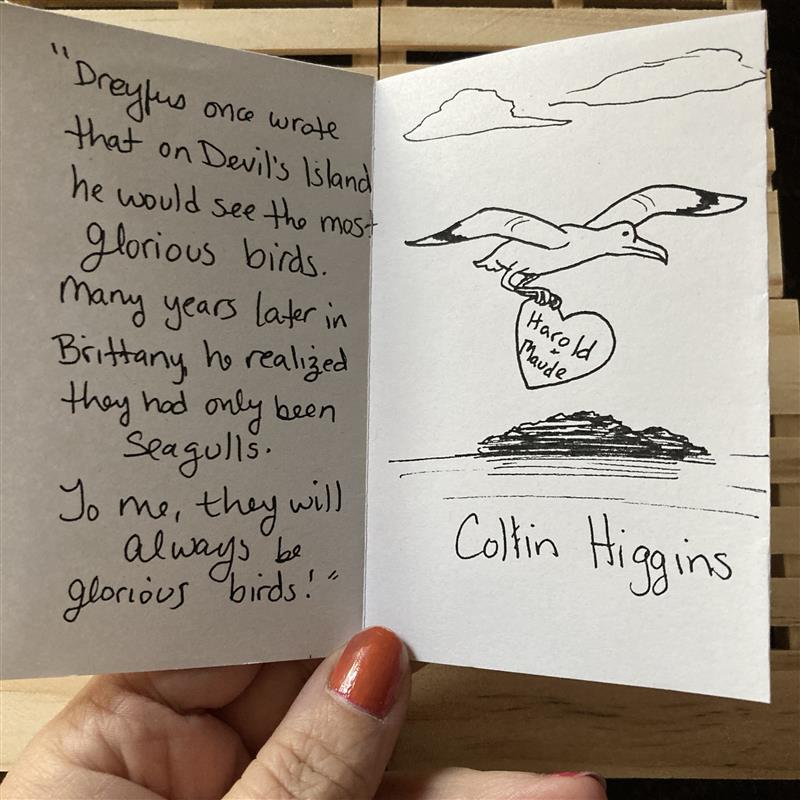 "Dreyfus once wrote
that on Devil's Island
he would see the most
glorious birds.
Many years later in
Brittany, he realized
they had only been
Seagulls.
To me, they will
always be
glorious birds!"
Harold
+
Maude
Coltin Higgins